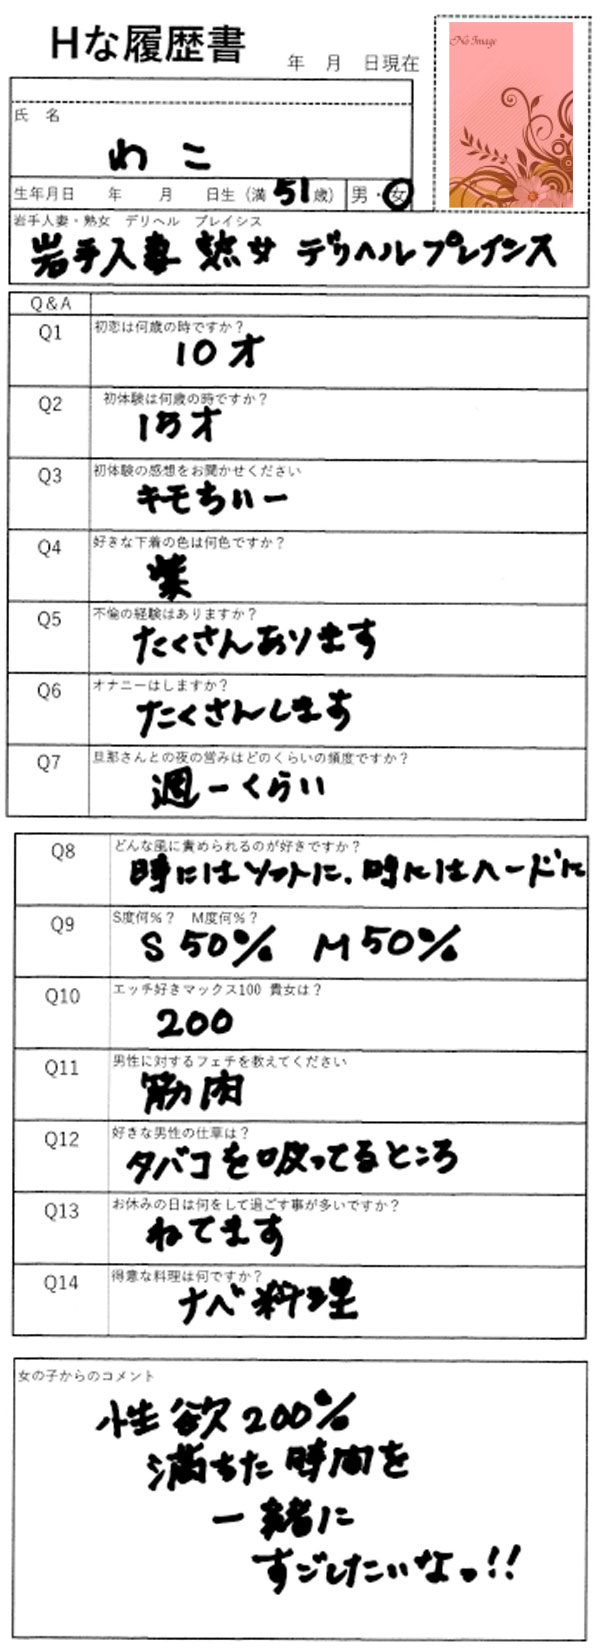 Hな履歴書
年 月 日現在
No Image
氏 名
わこ
生年月日 年 月 日生（満51歳）男・女
岩手人妻・熟女 デリヘル プレイシス
岩手人妻 熟女 デリヘルプレインス
Q&A
Q1 初恋は何歳の時ですか？
10才
Q2 初体験は何歳の時ですか？
15才
Q3 初体験の感想をお聞かせください
キモちいー
Q4 好きな下着の色は何色ですか？
紫
Q5 不倫の経験はありますか？
たくさんあります
Q6 オナニーはしますか？
たくさんします
Q7 旦那さんとの夜の営みはどのくらいの頻度ですか？
週一くらい
Q8 どんな風に責められるのが好きですか？
時にはソフトに、時にはハードに
Q9 S度何％？ M度何％？
S 50% M 50%
Q10 エッチ好きマックス100 貴女は？
200
Q11 男性に対するフェチを教えてください
筋肉
Q12 好きな男性の仕草は？
タバコを吸ってるところ
Q13 お休みの日は何をして過ごす事が多いですか？
ねてます
Q14 得意な料理は何ですか？
ナベ料理
女の子からのコメント
性欲200％
満ちた時間を
一緒に
すごしたいなっ!!